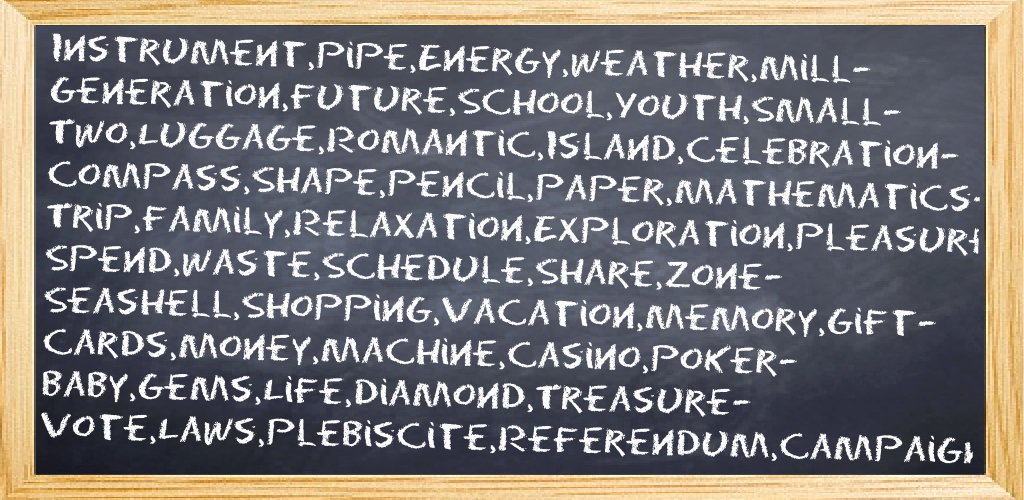 INSTRUMENT,PIPE,ENERGY,WEATHER,MILL-
GENERATION,FUTURE,SCHOOL,YOUTH,SMALL-
TWO,LUGGAGE,ROMANTIC,ISLAND,CELEBRATION-
COMPASS,SHAPE,PENCIL,PAPER,MATHEMATICS-
TRIP,FAMILY,RELAXATION,EXPLORATION,PLEASUR
SPEND,WASTE,SCHEDULE,SHARE,ZONE-
SEASHELL,SHOPPING,VACATION,MEMORY,GIFT-
CARDS,MONEY,MACHINE,CASINO,POKER-
BABY,GEMS,LIFE,DIAMOND,TREASURE-
VOTE,LAWS,PLEBISCITE,REFERENDUM,CAMPAIG